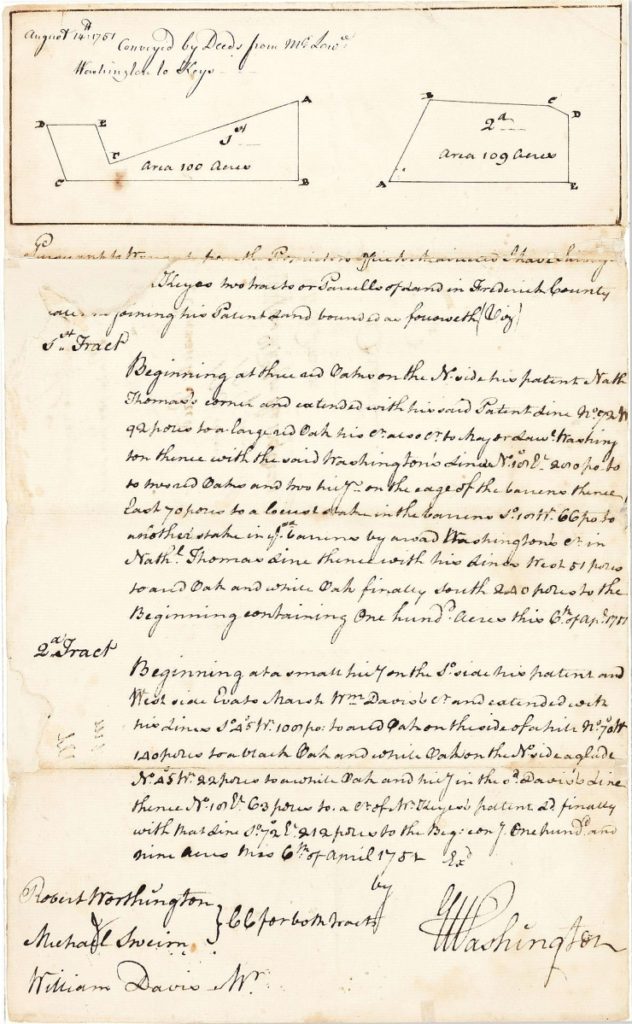 August 14th 1751
Conveyed by Deeds from Mr. Lawce.
Washington to Keys
D E A
1st
F
Area 100 Acres
C B
B C D
2d
Area 109 Acres
A E
Pursuant to Warrant from the Proprietors Office
Keyes two tracts or Parcells of Land in Frederick County
joining his Patent Land bounded as followeth (Viz)
1st Tract
Beginning at three red Oaks on the No. side his patent Nath
Thomas's corner and extended with his said Patent Line No. 72 W
92 poles to a large red Oak his Cr. also Cr. to Major Lawe. Washing
ton thence with the said Washington's Line No. 18 Et. 280 po. to
to two red Oaks and two hic'y. on the edge of the barrens thence
East 70 poles to a locust stake in the barrens So. 18 Wt. 66 po. to
another stake in ye. sd. barrens by a road Washington's Cr. in
Nathl. Thomas Line thence with his Lines West 51 poles
to a red Oak and white Oak finally South 240 poles to the
Beginning containing One hund'd. Acres this 6th of Apl. 1751
2d Tract
Beginning at a small hic'y on the So. side his patent and
West side Evats Marsh Wm Davis's Cr. and extended with
his Lines So. 45 Wt. 100 po. to a red Oak on the side of a hill No. 70 Wt
140 poles to a black Oak and white Oak on the No. side a glade
No. 45 Wt. 22 poles to a white Oak and hic'y in the sd. Davis's Line
thence No. 18 Et. 63 poles to a Cr. of Mr. Keyes's patent Ld. finally
with that Line So. 72 Et. 212 poles to the Beg: con'g. One hund'd. and
nine Acres this 6th of April 1751
by
Robert Worthington
Michael Sweirn } CC for both tracts
William Davis Mr.
GWashington